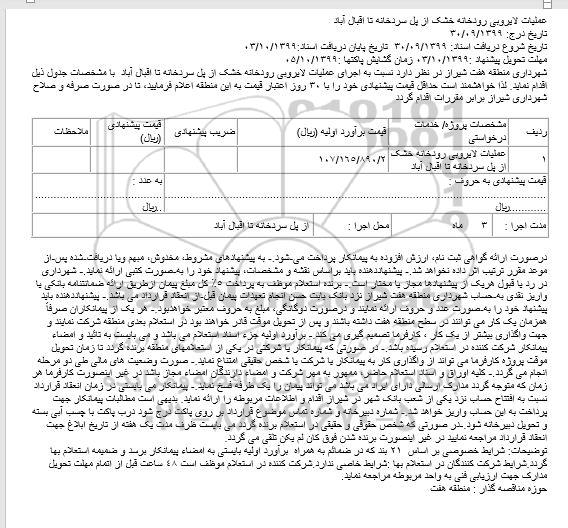 عملیات لایروبی رودخانه خشک از پل سردخانه تا اقبال آباد
تاریخ درج: ۳۰/۰۹/۱۳۹۹
تاریخ شروع دریافت اسناد: ۳۰/۰۹/۱۳۹۹ تاریخ پایان دریافت اسناد: ۰۳/۱۰/۱۳۹۹
مهلت تحویل پیشنهاد: ۰۳/۱۰/۱۳۹۹ زمان گشایش پاکتها: ۰۵/۱۰/۱۳۹۹
شهرداری منطقه هفت شیراز در نظر دارد نسبت به اجرای عملیات لایروبی رودخانه خشک از پل سردخانه تا اقبال آباد با مشخصات جدول ذیل
اقدام نماید. لذا خواهشمند است حداقل قیمت پیشنهادی خود را با ۳۰ روز اعتبار قیمت به این منطقه اعلام فرمایید، تا در صورت صرفه و صلاح
شهرداری شیراز برابر مقررات اقدام گردد
ردیف مشخصات پروژه/ خدمات درخواستی قیمت برآورد اولیه (ریال) ضریب پیشنهادی قیمت پیشنهادی (ریال) ملاحظات
۱ عملیات لایروبی رودخانه خشک از پل سردخانه تا اقبال آباد ۱۰۷/۱۶۵/۸۹۰/۲
قیمت پیشنهادی به حروف : به عدد :
ریال ریال
مدت اجرا : ۳ ماه محل اجرا : از پل سردخانه تا اقبال آباد
درصورت ارائه گواهی ثبت نام، ارزش افزوده به پیمانکار پرداخت می‌شود.ـ به پیشنهادهای مشروط، مخدوش، مبهم ویا دریافت‌شده پس‌از
موعد مقرر ترتیب اثر داده نخواهد شد.ـ پیشنهاددهنده باید براساس نقشه و مشخصات، پیشنهاد خود را به‌صورت کتبی ارائه نماید.ـ شهرداری
در رد یا قبول هریک از پیشنهادها مجاز یا مختار است.ـ برنده استعلام موظف به پرداخت ۵٪ کل مبلغ پیمان ازطریق ارائه ضمانتنامه بانکی یا
واریز نقدی به‌حساب شهرداری منطقه هفت شیراز نزد بانک بابت حسن انجام تعهدات پیمان قبل‌از انعقاد قرارداد می باشد.ـ پیشنهاددهنده باید
پیشنهاد خود را به‌صورت عدد و حروف ارائه نمایند و درصورت دوگانگی، مبلغ به حروف معتبر خواهدبود.ـ هر یک از پیمانکاران صرفاً
همزمان یک کار می توانند در سطح منطقه هفت داشته باشند و پس از تحویل موقت قادر خواهند بود در استعلام بعدی منطقه شرکت نمایند و
جهت واگذاری بیشتر از یک کار ، کارفرما تصمیم گیری می کند.ـ برآورد اولیه جزء اسناد استعلام می باشد و می بایست به تائید و امضاء
پیمانکار شرکت کننده در استعلام رسیده باشد.ـ در صورتی که پیمانکار یا شرکتی در یکی از استعلامهای منطقه برنده گردد تا زمان تحویل
موقت پروژه کارفرما می تواند از واگذاری کار به پیمانکار یا شرکت یا شخص حقیقی امتناع نماید.ـ صورت وضعیت های مالی طی دو مرحله
انجام می گردد.ـ کلیه اوراق و اسناد استعلام حاضر، ممهور به مهر شرکت و امضاء دارندگان امضاء مجاز باشد در غیر اینصورت کارفرما هر
زمان که متوجه گردد مدارک ارسالی دارای ایراد می باشد می تواند پیمان را یک طرفه فسخ نماید.ـ پیمانکار می بایستی در زمان انعقاد قرارداد
نسبت به افتتاح حساب نزد یکی از شعب بانک شهر در شیراز اقدام و اطلاعات مربوطه را ارائه نماید. بدیهی است مطالبات پیمانکار جهت
پرداخت به این حساب واریز خواهد شد.ـ شماره دبیرخانه و شماره تماس موضوع قرارداد بر روی پاکت درج شود درب پاکت با چسب آبی بسته
و تحویل دبیرخانه شود.ـدر صورتی که شخص حقوقی و حقیقی در استعلام برنده گردد می بایست ظرف مدت یک هفته از تاریخ ابلاغ جهت
انعقاد قرارداد مراجعه نمایید در غیر اینصورت برنده شدن فوق کان لم یکن تلقی می گردد.
توضیحات: شرایط خصوصی بر اساس ۲۱ بند که در ضمائم به همراه برآورد اولیه بایستی به امضاء پیمانکار برسد و ضمیمه استعلام بها
گردد.شرایط شرکت کنندگان در استعلام بها :شرایط خاصی ندارد.شرکت کننده در استعلام موظف است ۴۸ ساعت قبل از اتمام مهلت تحویل
مدارک جهت ارزیابی فنی به واحد مربوطه مراجعه نماید.
حوزه مناقصه گذار : منطقه هفت